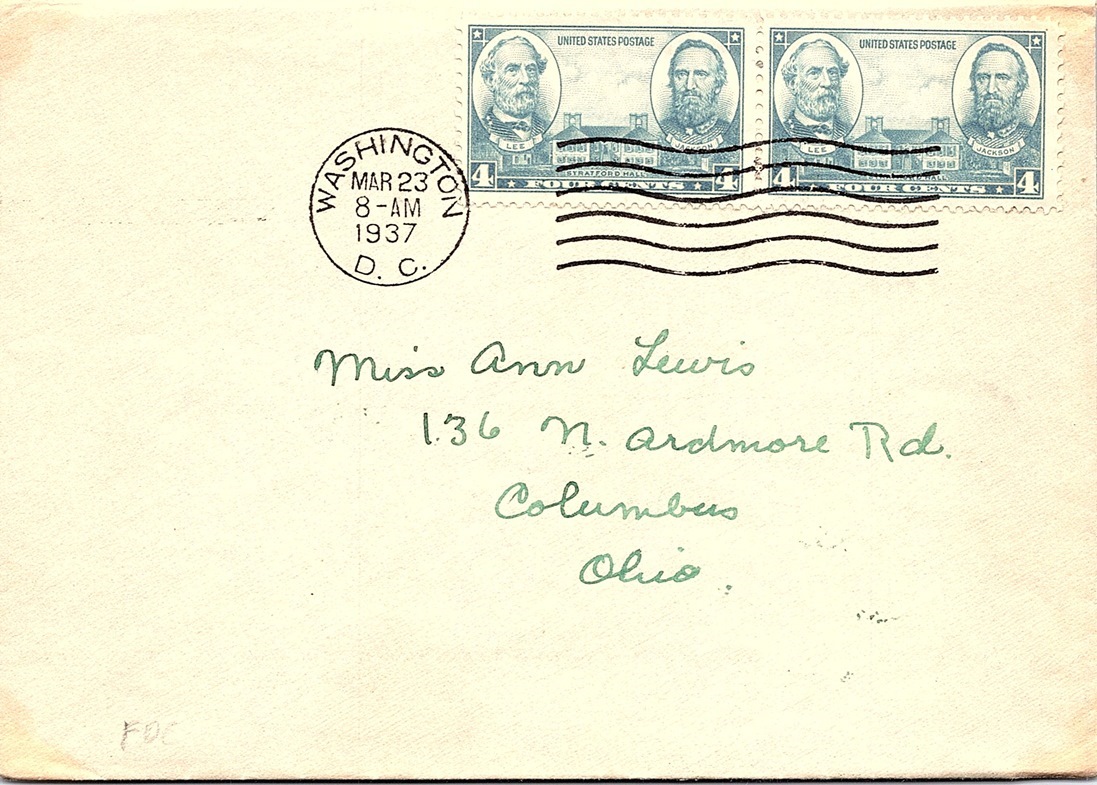 UNITED STATES POSTAGE
LEE
JACKSON
STRATFORD HALL
4 FOUR CENTS 4
UNITED STATES POSTAGE
LEE
JACKSON
4 FOUR CENTS 4
WASHINGTON
MAR 23
8-AM
1937
D. C.
Miss Ann Lewis
136 N. Ardmore Rd.
Columbus
Ohio.
FDC